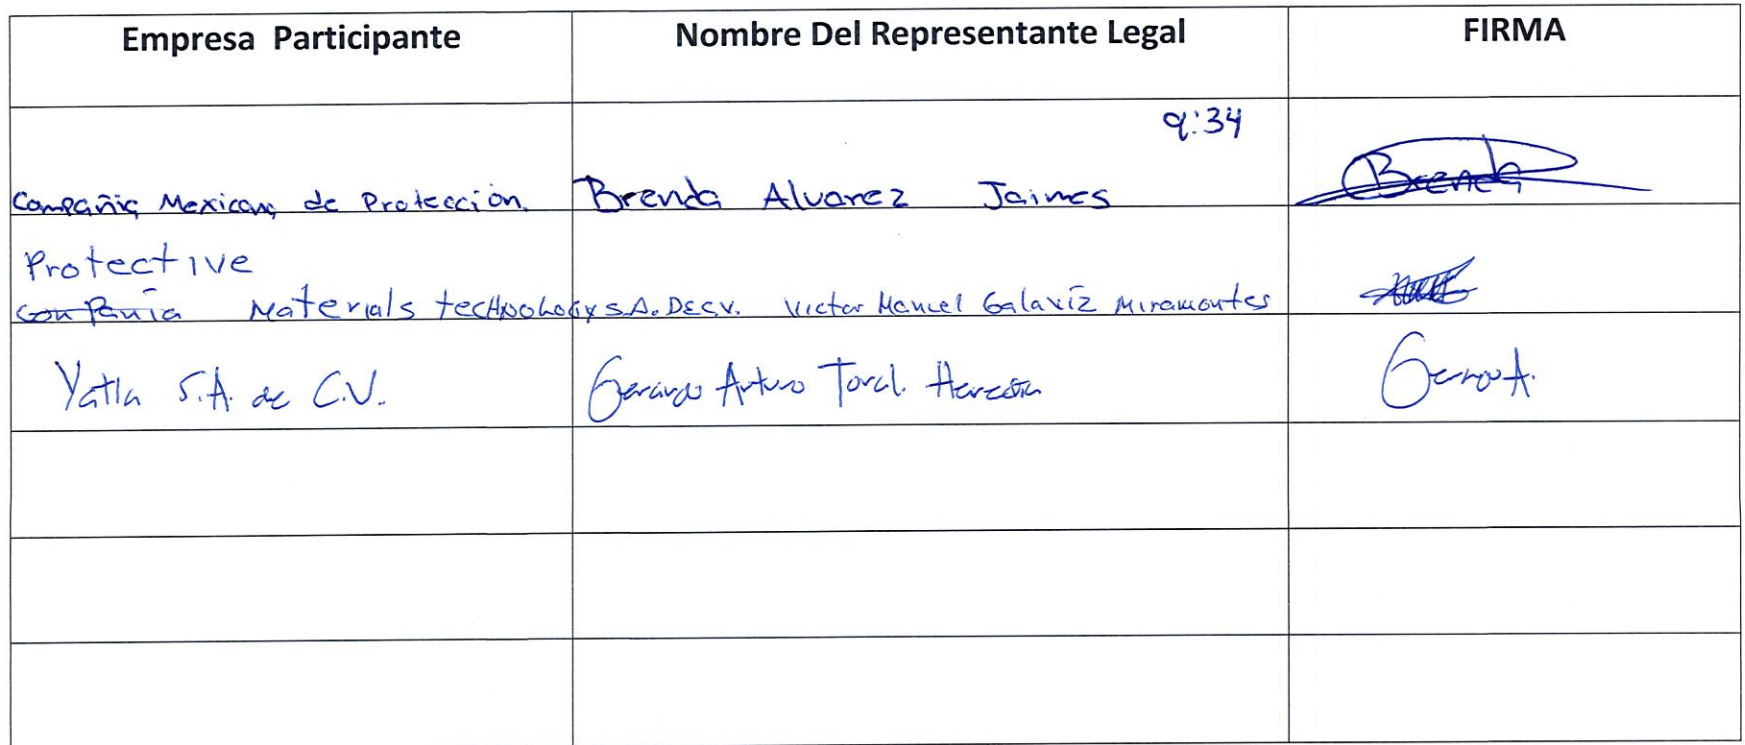 Empresa Participante Nombre Del Representante Legal FIRMA
9:34
Compañia Mexicana de Protección. Brenda Alvarez Jaimes Brenda
Protective
Compañia Materials technology S.A. DE C.V. Victor Manuel Galaviz Miramontes
Yatla S.A. de C.V. Gerardo Arturo Toral. Heredia Gerardo A.